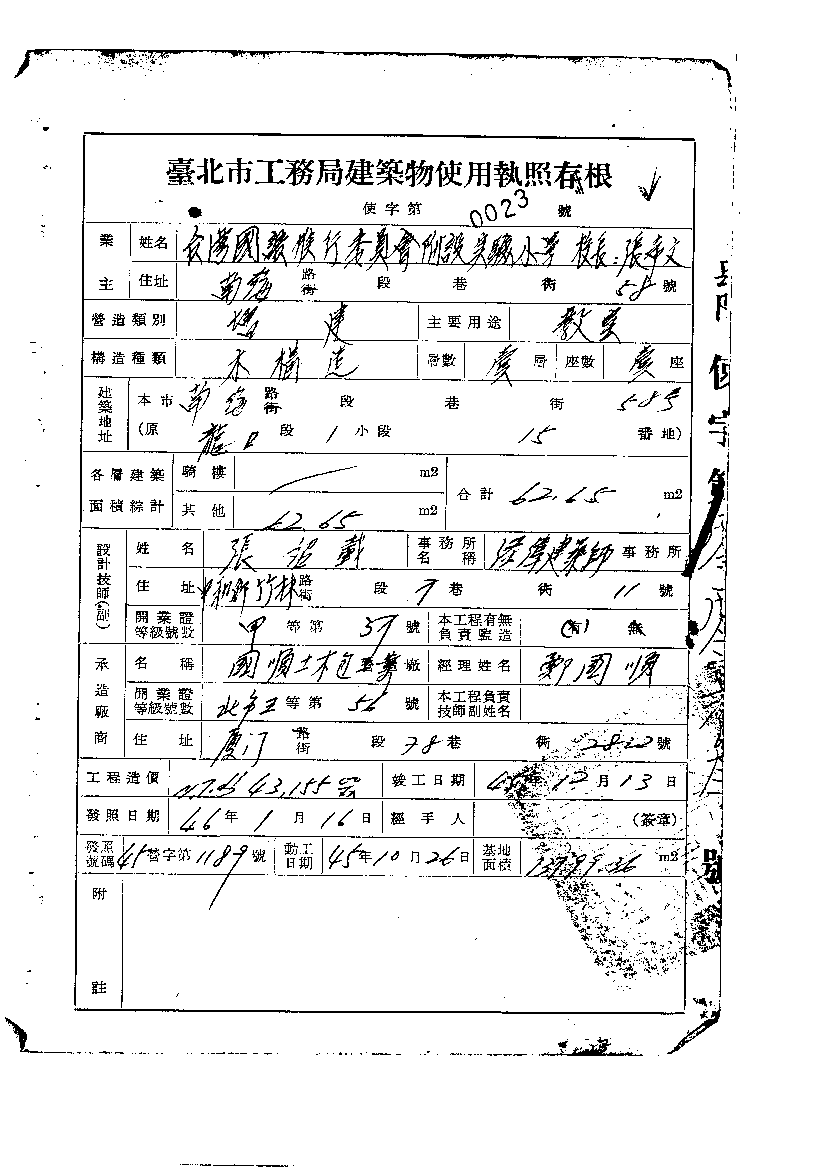 臺北市工務局建築物使用執照存根
使字第 0023 號
業主 姓名 台灣國語推行委員會附設實驗小學 校長:張希文
住址 南海 路街 段 巷 衖 58 號
營造類別 增建 主要用途 教室
構造種類 木構造 層數 壹 層 座數 壹 座
建築地址 本市 南海 路街 段 巷 衖 58號
(原 龍口 段 1 小段 15 番地)
各層建築面積綜計 騎樓 m2 合計 62.65 m2
其他 62.65 m2
設計技師(副) 姓名 張 事務所名稱 建築師 事務所
住址 中和鄉竹林 路街 段 7 巷 衖 11 號
開業證等級號數 甲 等第 57 號 本工程有無負責監造 (有) 無
承造廠商 名稱 國順土木包工業 廠 經理姓名 鄭國順
開業證等級號數 北市王 等第 56 號 本工程負責技師副姓名
住址 廈门 路街 段 78 巷 衖 號
工程造價 NT$ 43,155 竣工日期 45 年 12 月 13 日
發照日期 46 年 1 月 16 日 經手人 (簽章)
發照號碼 45 營字第 1189 號 動工日期 45 年 10 月 26 日 基地面積 m2
附註